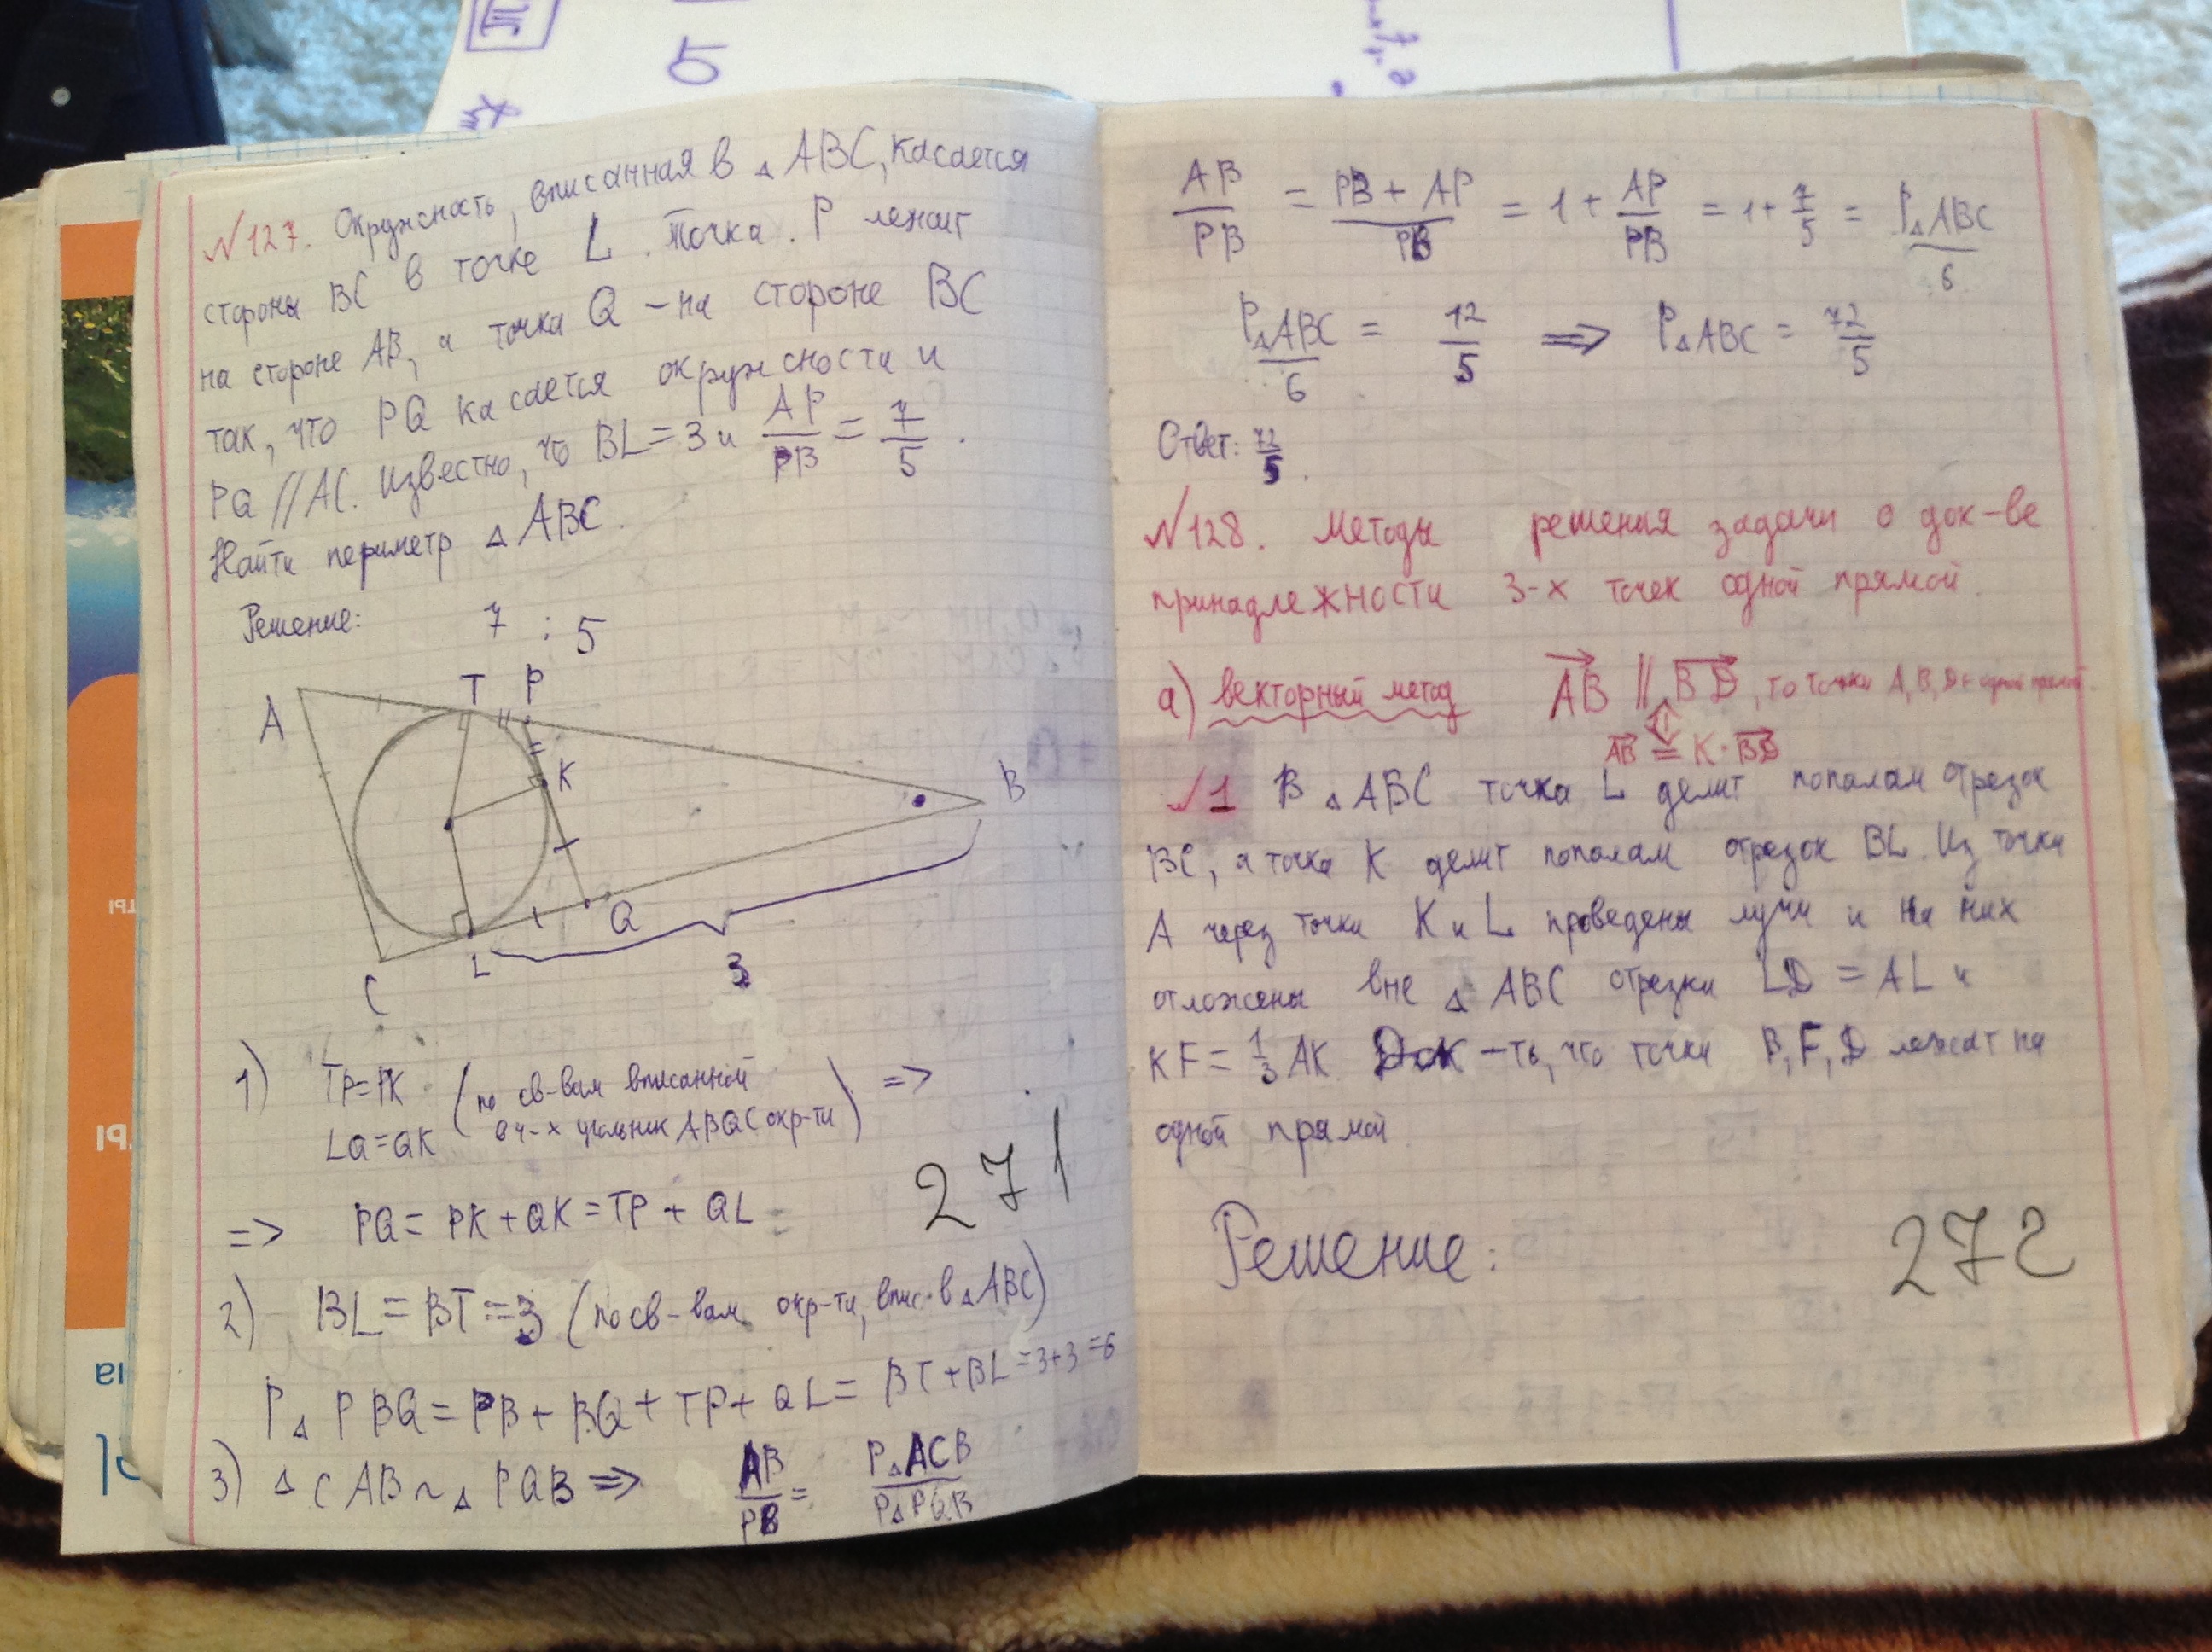 №127. Окружность, вписанная в △ ABC, касается
стороны BC в точке L. Точка P лежит
на стороне AB, а точка Q – на стороне BC
так, что PQ касается окружности и
PQ // AC. Известно, что BL = 3 и AP/PB = 7/5.
Найти периметр △ ABC.
Решение:
7 : 5
A T P
K
B
Q
L
C
3
1) TP = PK
LQ = QK
(по св-вам вписанной
в 4-х угольник APQC окр-ти) =>
=> PQ = PK + QK = TP + QL =
271
2) BL = BT = 3 (по св-вам окр-ти, впис. в △ABC)
P△PBQ = PB + BQ + TP + QL = BT + BL = 3+3 = 6
3) △ CAB ~ △ PQB => AB/PB = P△ACB/P△PQB
AB/PB = PB + AP/PB = 1 + AP/PB = 1 + 7/5 = P△ABC/6
P△ABC/6 = 12/5 => P△ABC = 72/5
Ответ: 72/5.
№128. Методы решения задачи о док-ве
принадлежности 3-х точек одной прямой.
а) векторный метод AB || BD, то точки A, B, D ∈ одной прямой.
AB = K · BD
№1 В △ ABC точка L делит пополам отрезок
BC, а точка K делит пополам отрезок BL. Из точки
A через точки K и L проведены лучи и на них
отложены вне △ ABC отрезки LD = AL и
KF = 1/3 AK. Док-ть, что точки B, F, D лежат на
одной прямой.
Решение:
272